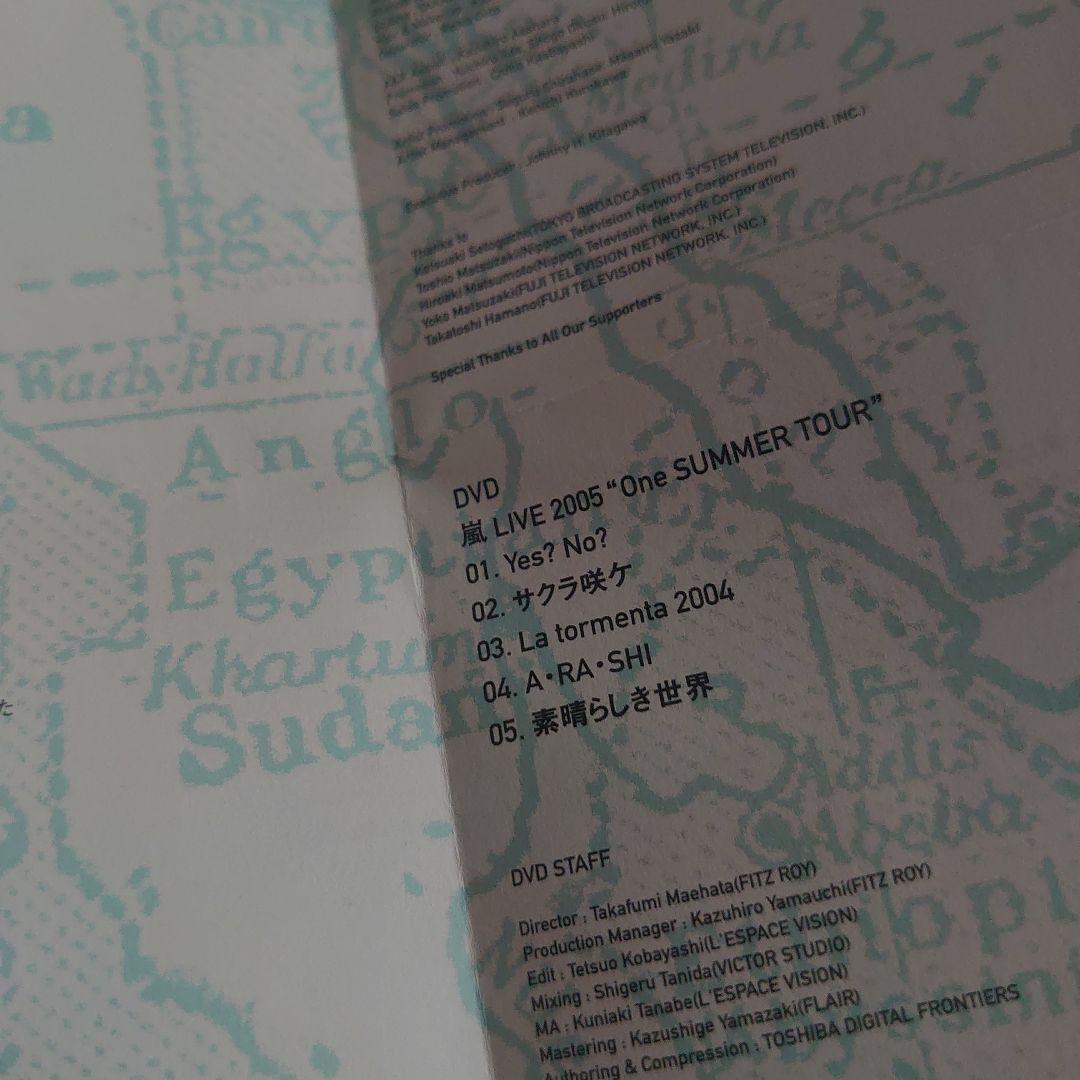 Cairo
a
Egypt
Wady-Halfa
Anglo-
Egypt
Khartum
Sudan
た
Medina
Mecca.
A
Addis
Abeba
Executive Producer : Johnny H. Kitagawa
Thanks to
(TOKYO BROADCASTING SYSTEM TELEVISION, INC.)
Toshio Matsuzaki(Nippon Television Network Corporation)
Hiroaki Matsumoto(Nippon Television Network Corporation)
Yoko Matsuzaki(FUJI TELEVISION NETWORK, INC.)
Takatoshi Hamano(FUJI TELEVISION NETWORK, INC.)
Special Thanks to All Our Supporters
DVD
嵐 LIVE 2005 “One SUMMER TOUR”
01. Yes? No?
02. サクラ咲ケ
03. La tormenta 2004
04. A・RA・SHI
05. 素晴らしき世界
DVD STAFF
Director : Takafumi Maehata(FITZ ROY)
Production Manager : Kazuhiro Yamauchi(FITZ ROY)
Edit : Tetsuo Kobayashi(L'ESPACE VISION)
Mixing : Shigeru Tanida(VICTOR STUDIO)
MA : Kuniaki Tanabe(L'ESPACE VISION)
Mastering : Kazushige Yamazaki(FLAIR)
Authoring & Compression : TOSHIBA DIGITAL FRONTIERS